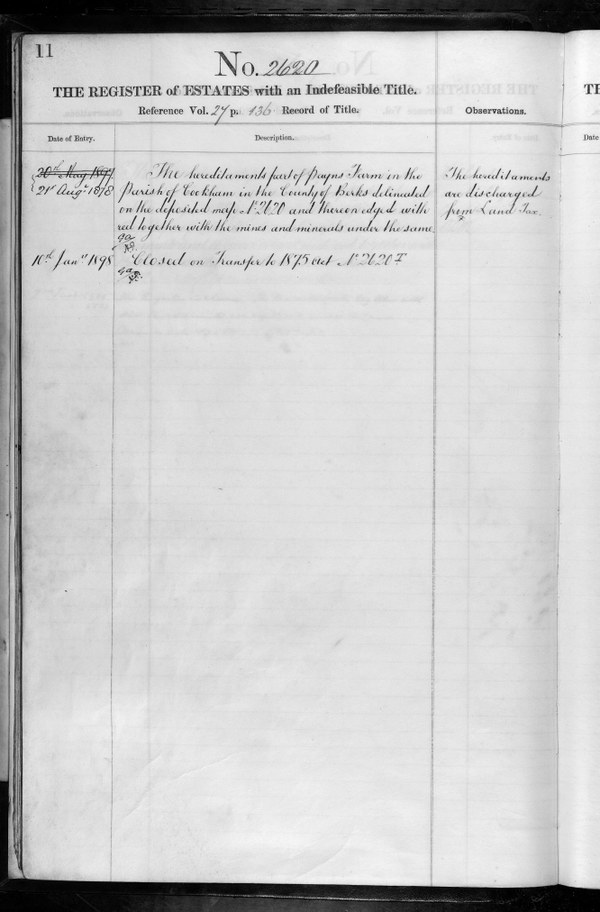 11
No. 2620
THE REGISTER of ESTATES with an Indefeasible Title.
Reference Vol. 27 p. 136 Record of Title.
Observations.
Date of Entry.
Description.
20th May 1897
21st Augst 1878
The hereditaments part of Payns Farm in the
Parish of Cookham in the County of Berks delineated
on the deposited map No 2620 and thereon edged with
red together with the mines and minerals under the same.
The hereditaments
are discharged
from Land Tax.
10th Jany 1898
Closed on Transfer to 1875 Act No 2620